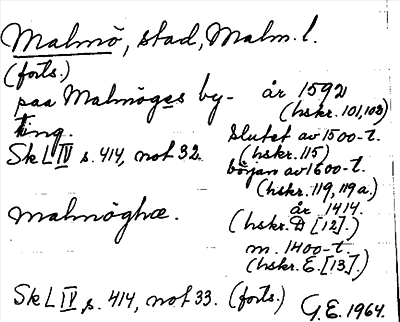 Malmö, stad, Malm. l.
(forts.)
paa Malmöges by- år 1592
(hskr. 101, 102)
ting. slutet av 1500-t.
Sk L IV s. 414, not 32. (hskr. 115)
början av 1600-t.
(hskr. 119, 119 a.)
malmöghæ. år 1414.
(hskr. D [12].)
m. 1400-t.
(hskr. E. [13].)
Sk L IV s. 414, not 33. (forts.)
G.E. 1964.